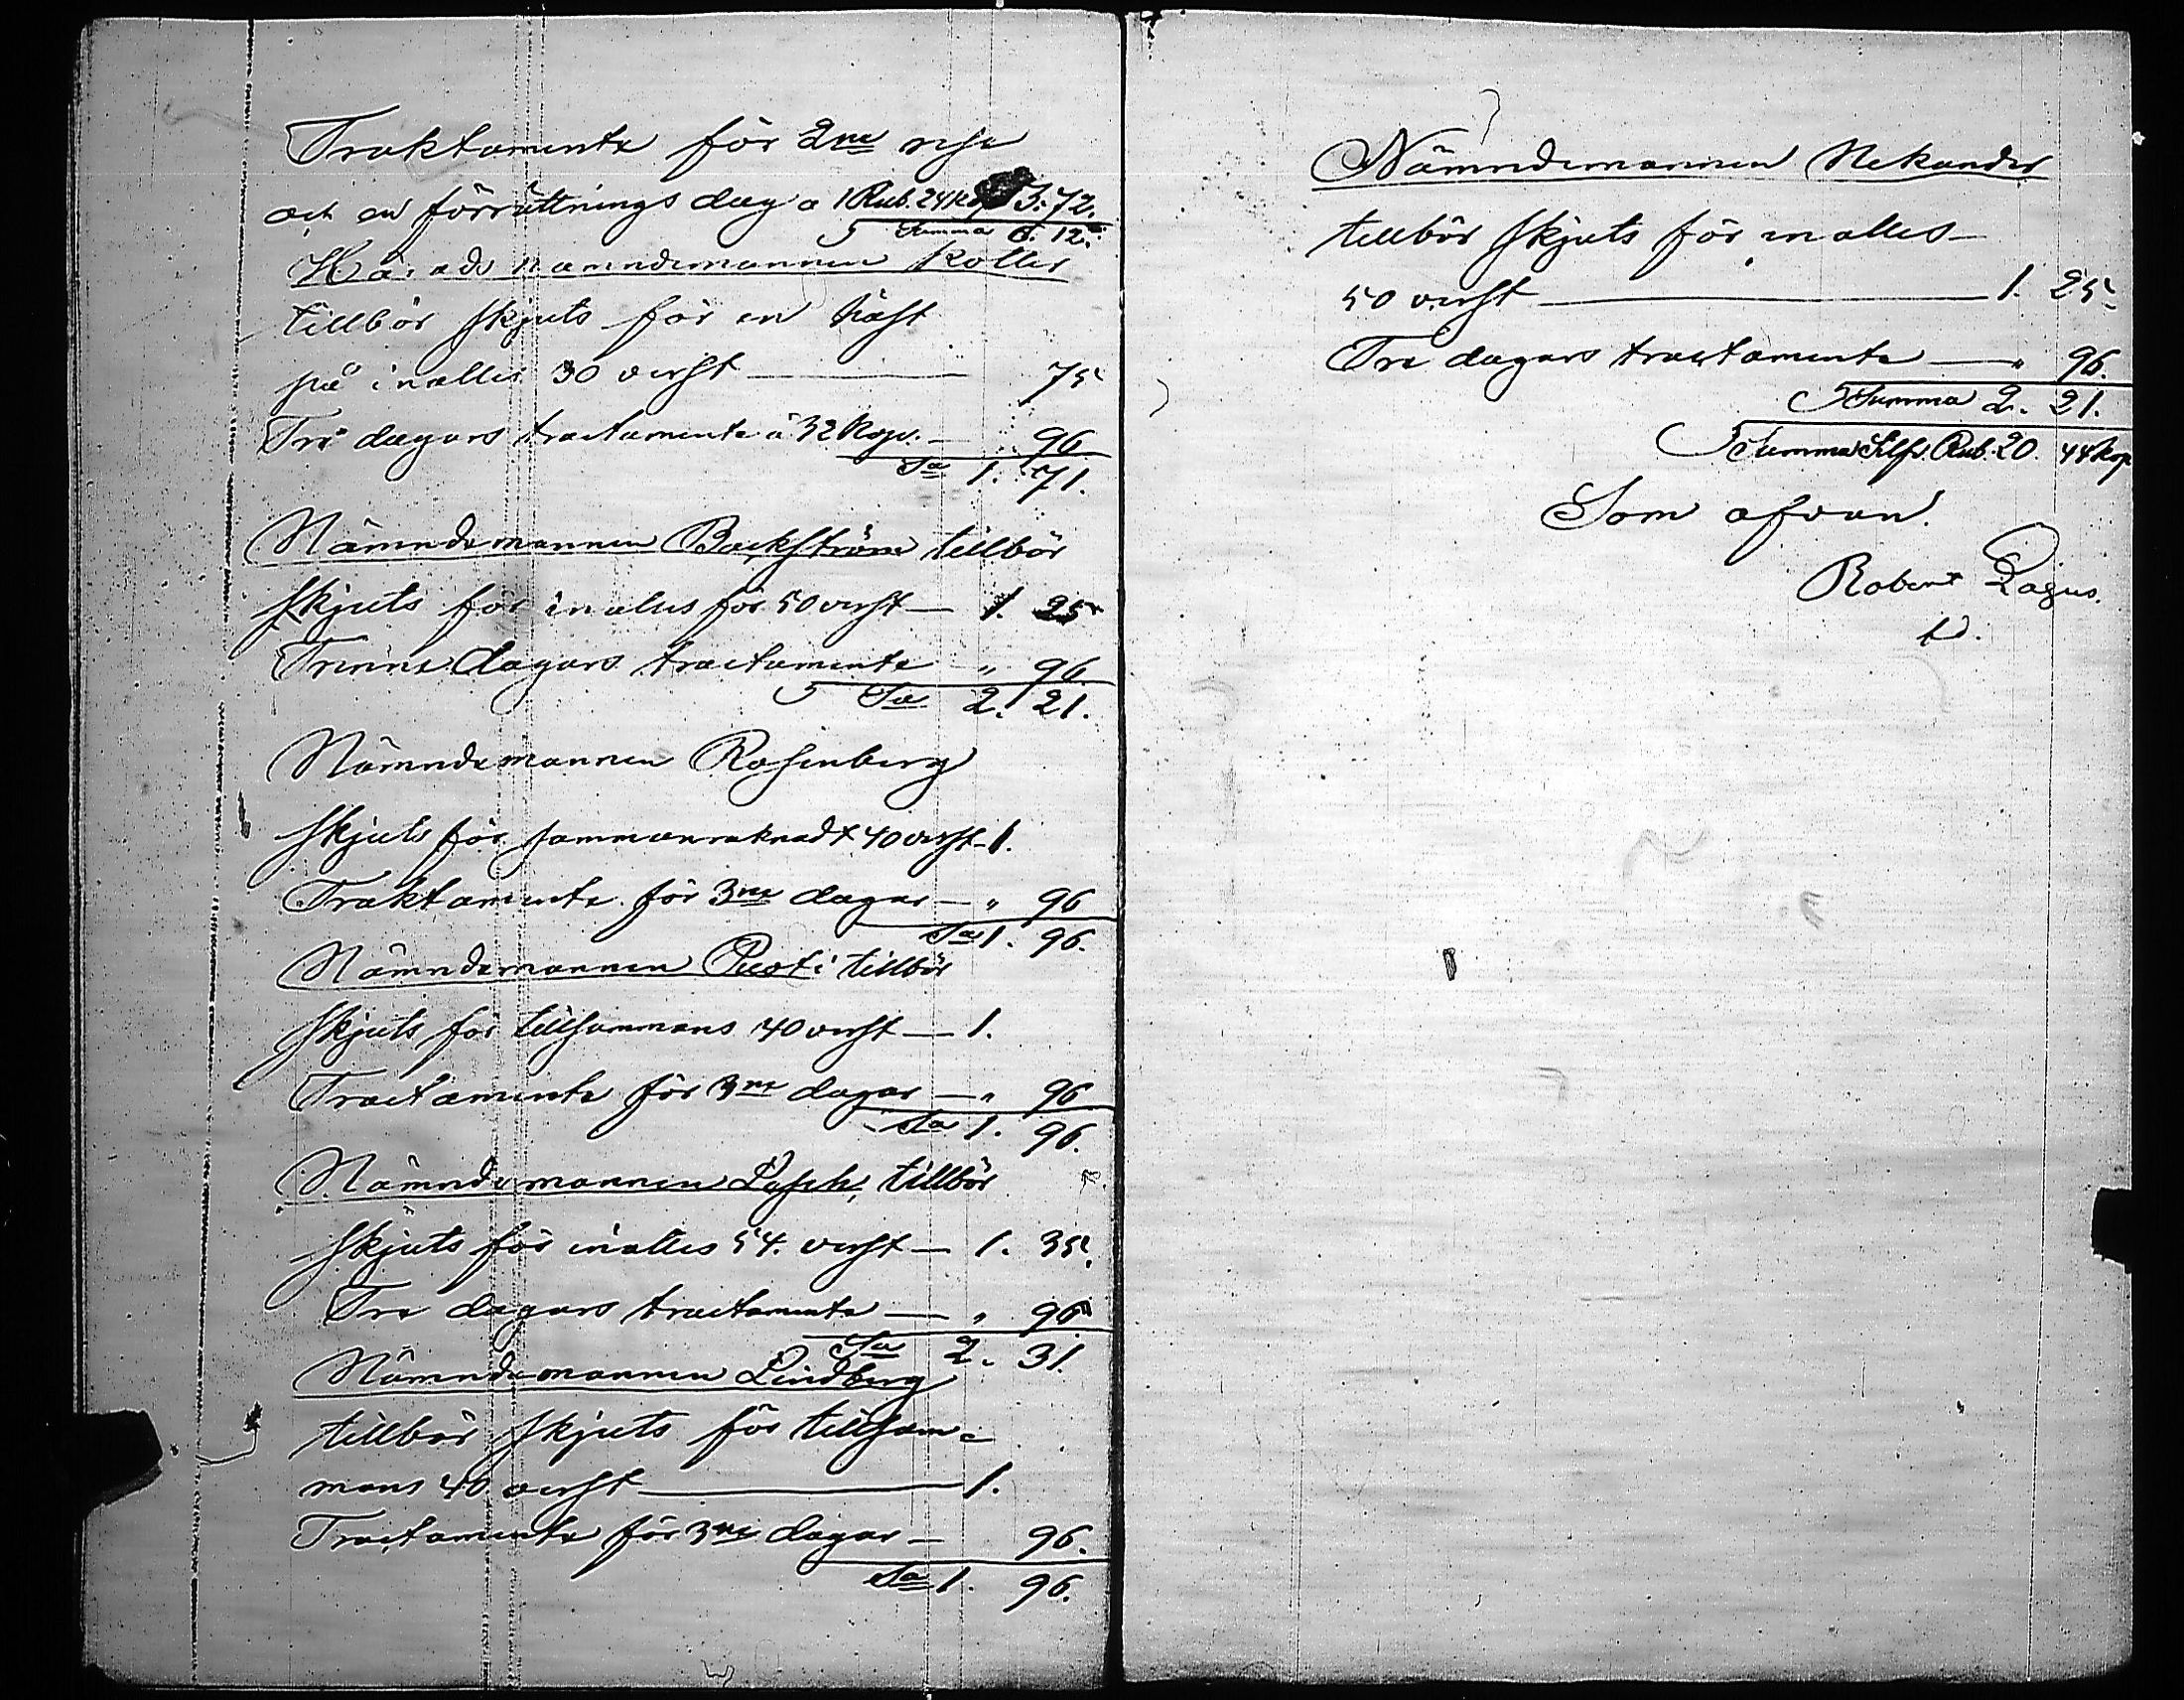 Traktamente för 2ne rese
och en förrättnings dag a 1 Rub. 24 k 3. 72.
Summa 6. 12.
Härads nämndemannen Koller
tillbör skjuts för en häst
på inalles 30 verst — 75
Tre dagars tractamente a 32 Kop. — 96
Sa 1. 71.
Nämndemannen Backström tillbör
skjuts för inalles för 50 verst — 1. 25
Trenne dagars tractamente — " 96
Sa 2. 21.
Nämndemannen Rosenberg
skjuts för sammanraknadt 40 verst — 1.
Traktamente för 3ne dagar — " 96
Sa 1. 96.
Nämndemannen Pusti tillbör
skjuts för tillsammans 40 verst — 1.
Tractamente för 3ne dagar — " 96
Sa 1. 96.
Nämndemannen tillbör
skjuts för inalles 54. verst — 1. 35.
Tre dagars tractamente — " 96
Sa 2. 31.
Nämndemannen Lindberg
tillbör skjuts för tillsam=
mans 40 verst — 1.
Tractamente för 3ne dagar — 96.
Sa 1. 96.
Nämndemannen Nekander
tillbör skjuts för inalles
50 verst — 1. 25
Tre dagars tractamente — " 96.
Summa 2. 21.
Summa Silfv. Rub. 20. 44 kop
Som ofvan.
Robert Lagus.